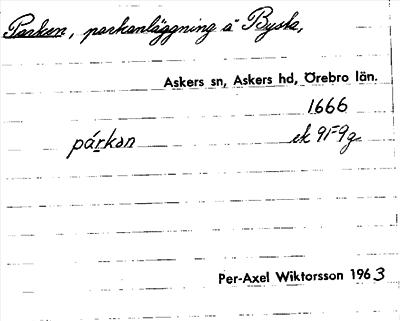 Parken, parkanläggning å Bysta,
Askers sn, Askers hd, Örebro län.
1666
párkan ek 9F9g
Per-Axel Wiktorsson 1963